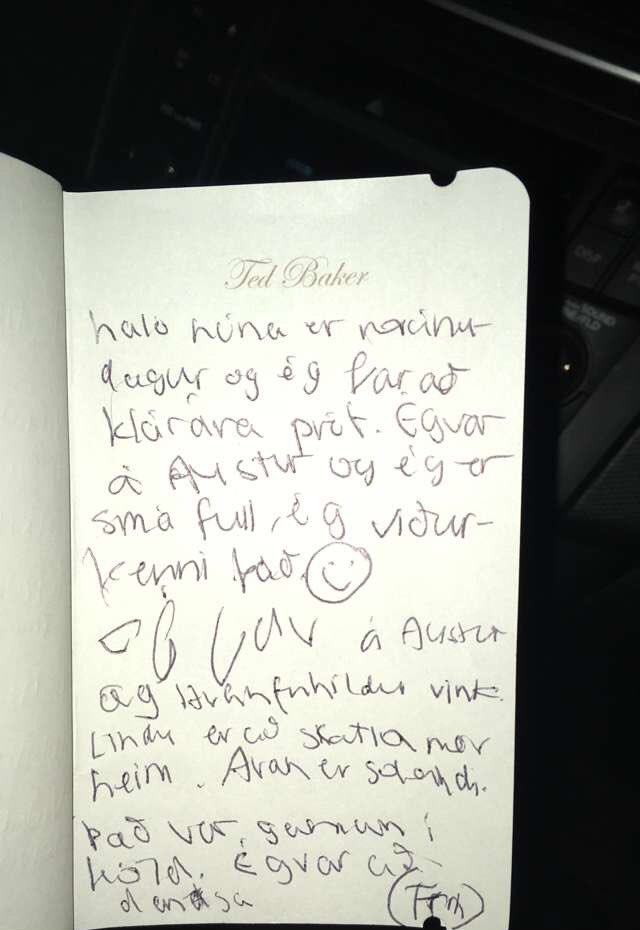 Ted Baker
halo núna er
dagur og ég var að
klárára próf. Ég var
á Austur og ég er
smá full, ég viður-
kenni það. 
á Austur
og Hrafnhildur vink.
Linda er að skutla mér
heim. Aran er
það var gaman í
köld. Ég var að
dansa